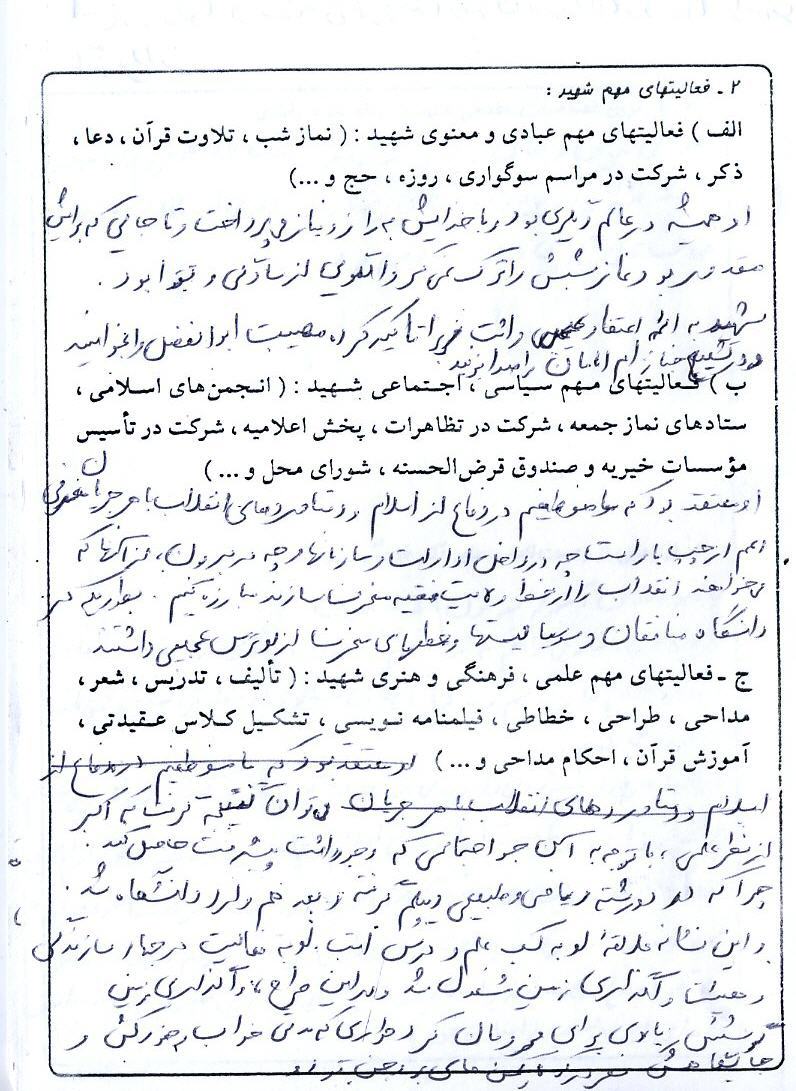 ۲ ـ فعالیتهای مهم شهید :
الف ) فعالیتهای مهم عبادی و معنوی شهید : ( نماز شب ، تلاوت قرآن ، دعا ،
ذکر ، شرکت در مراسم سوگواری ، روزه ، حج و ...)
او همیشه در عالم دیگری بود و با خدایش به راز و نیاز می پرداخت و تا جایی که برایش
مقدور بود نماز شبش را ترک نمی کرد و الگویی از سادگی و تقوا بود .
شهید به ائمه اعتقاد داشت تاکید کرد، مصیبت ابوالفضل را بخوانید
در تشییع جنازه ام امام زمان را صدا بزنید
ب ) فعالیتهای مهم سیاسی ، اجتماعی شهید : ( انجمن‌های اسلامی ،
ستادهای نماز جمعه ، شرکت در تظاهرات ، پخش اعلامیه ، شرکت در تأسیس
مؤسسات خیریه و صندوق قرض‌الحسنه ، شورای محل و ... )
او معتقد بود که ما موظفیم در دفاع از اسلام و دستاوردهای انقلاب با هر جریان
اعم از چپ یا راست چه در داخل ادارات و سازمانها و چه در بیرون، از آنها که
می خواهند انقلاب را از خط ولایت فقیه منحرف سازند مبارزه کنیم . بطوریکه در
دانشگاه منافقان و خطهای منحرف از او ترس عجیبی داشتند
ج ـ فعالیتهای مهم علمی ، فرهنگی و هنری شهید : ( تألیف ، تدریس ، شعر ،
مداحی ، طراحی ، خطاطی ، فیلمنامه نویسی ، تشکیل کلاس عقیدتی ،
آموزش قرآن ، احکام مداحی و ...) او معتقد بود که ما موظفیم در دفاع از
اسلام و دستاوردهای انقلاب با هر جریان می توان نتیجه گرفت که اکبر
از نظر علمی ، با توجه به آن جو اجتماعی که وجود داشت پیشرفت حاصل کند .
چرا که در دو رشته ریاضی و طبیعی دیپلم گرفته و بعد هم وارد دانشگاه شد .
و این نشانه علاقهٔ او به کسب علم و درس است. او به فعالیت در جهاد سازندگی
و هیئت واگذاری زمین مشغول شد و در این طرح ، واگذاری زمین
کوشش زیادی برای محرومان کرد بطوری که مدتی خواب و خوراکش و